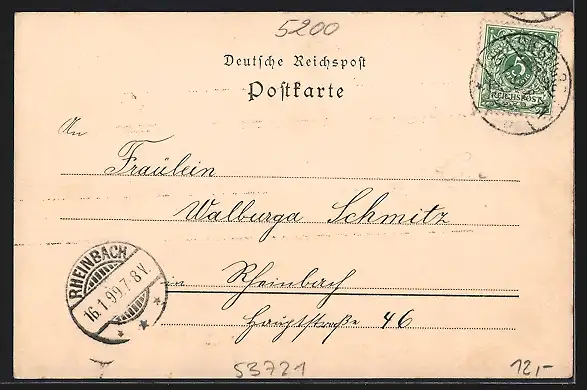 5200
Deutsche Reichspost
Postkarte
5
REICHSPOST
An
Fräulein
Walburga Schmitz
RHEINBACH
16.1.99.7-8V.
in Rheinbach
Hauptstraße 46
53721
12,-